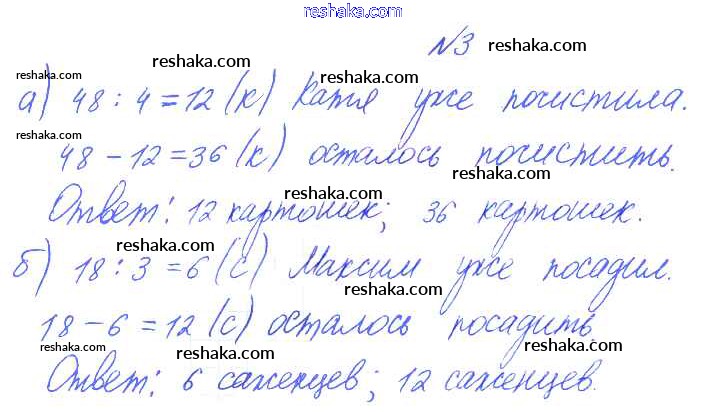 reshaka.com
№3 reshaka.com
reshaka.com
reshaka.com reshaka.com
а) 48 : 4 = 12 (к) Катя уже почистила.
reshaka.com reshaka.com
48 - 12 = 36 (к) осталось почистить.
reshaka.com reshaka.com
Ответ: 12 картошек; 36 картошек.
reshaka.com reshaka.com
б) 18 : 3 = 6 (с) Максим уже посадил.
reshaka.com reshaka.com
18 - 6 = 12 (с) осталось посадить
reshaka.com reshaka.com reshaka.com
Ответ: 6 саженцев; 12 саженцев.
reshaka.com